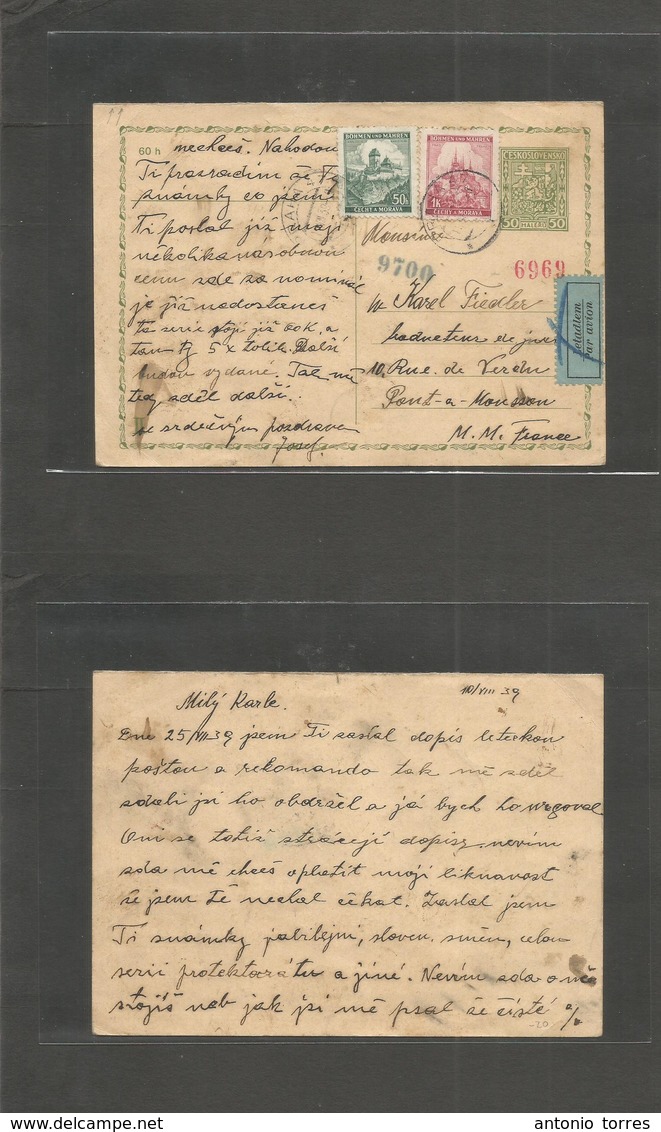 60 h
nechceš. Nahodou
Ti prozradím že Ty
známky co jsem
Ti poslal již mají
několikanásobnou
cenu zde za nominál
je již nedostaneš
ta serie stojí již 60K. a
tam 5 x tolik. Další
budou vydané. Tak mě
tedy sděl další.
se srdečným pozdravem
Josef.
BÖHMEN UND MÄHREN
50h
ČECHY A MORAVA
BÖHMEN UND MÄHREN
1K
ČECHY A MORAVA
ČESKOSLOVENSKO
50 HALÉŘŮ 50
Monsieur
9700
6969
Karel Fiedler
Letadlem
Par avion
10, Rue. de Verdun
Pont-a-Mousson
M. M. France
II
10/VIII 39
Milý Karle.
Dne 25/VII 39 jsem Ti zaslal dopis leteckou
poštou a rekomando tak mě sděl
zdali jsi ho obdržel a já bych ho urgoval
Oni se totiž ztrácejí dopisy nevím
zda mě chceš oplatit mojí liknavost
že jsem Tě nechal čekat. Zaslal jsem
Ti známky jubilejní, sloven. sněm, celou
serii protektorátu a jiné. Nevím zda o ně
stojíš neb jak jsi mě psal že čisté %
-20
antonio torres